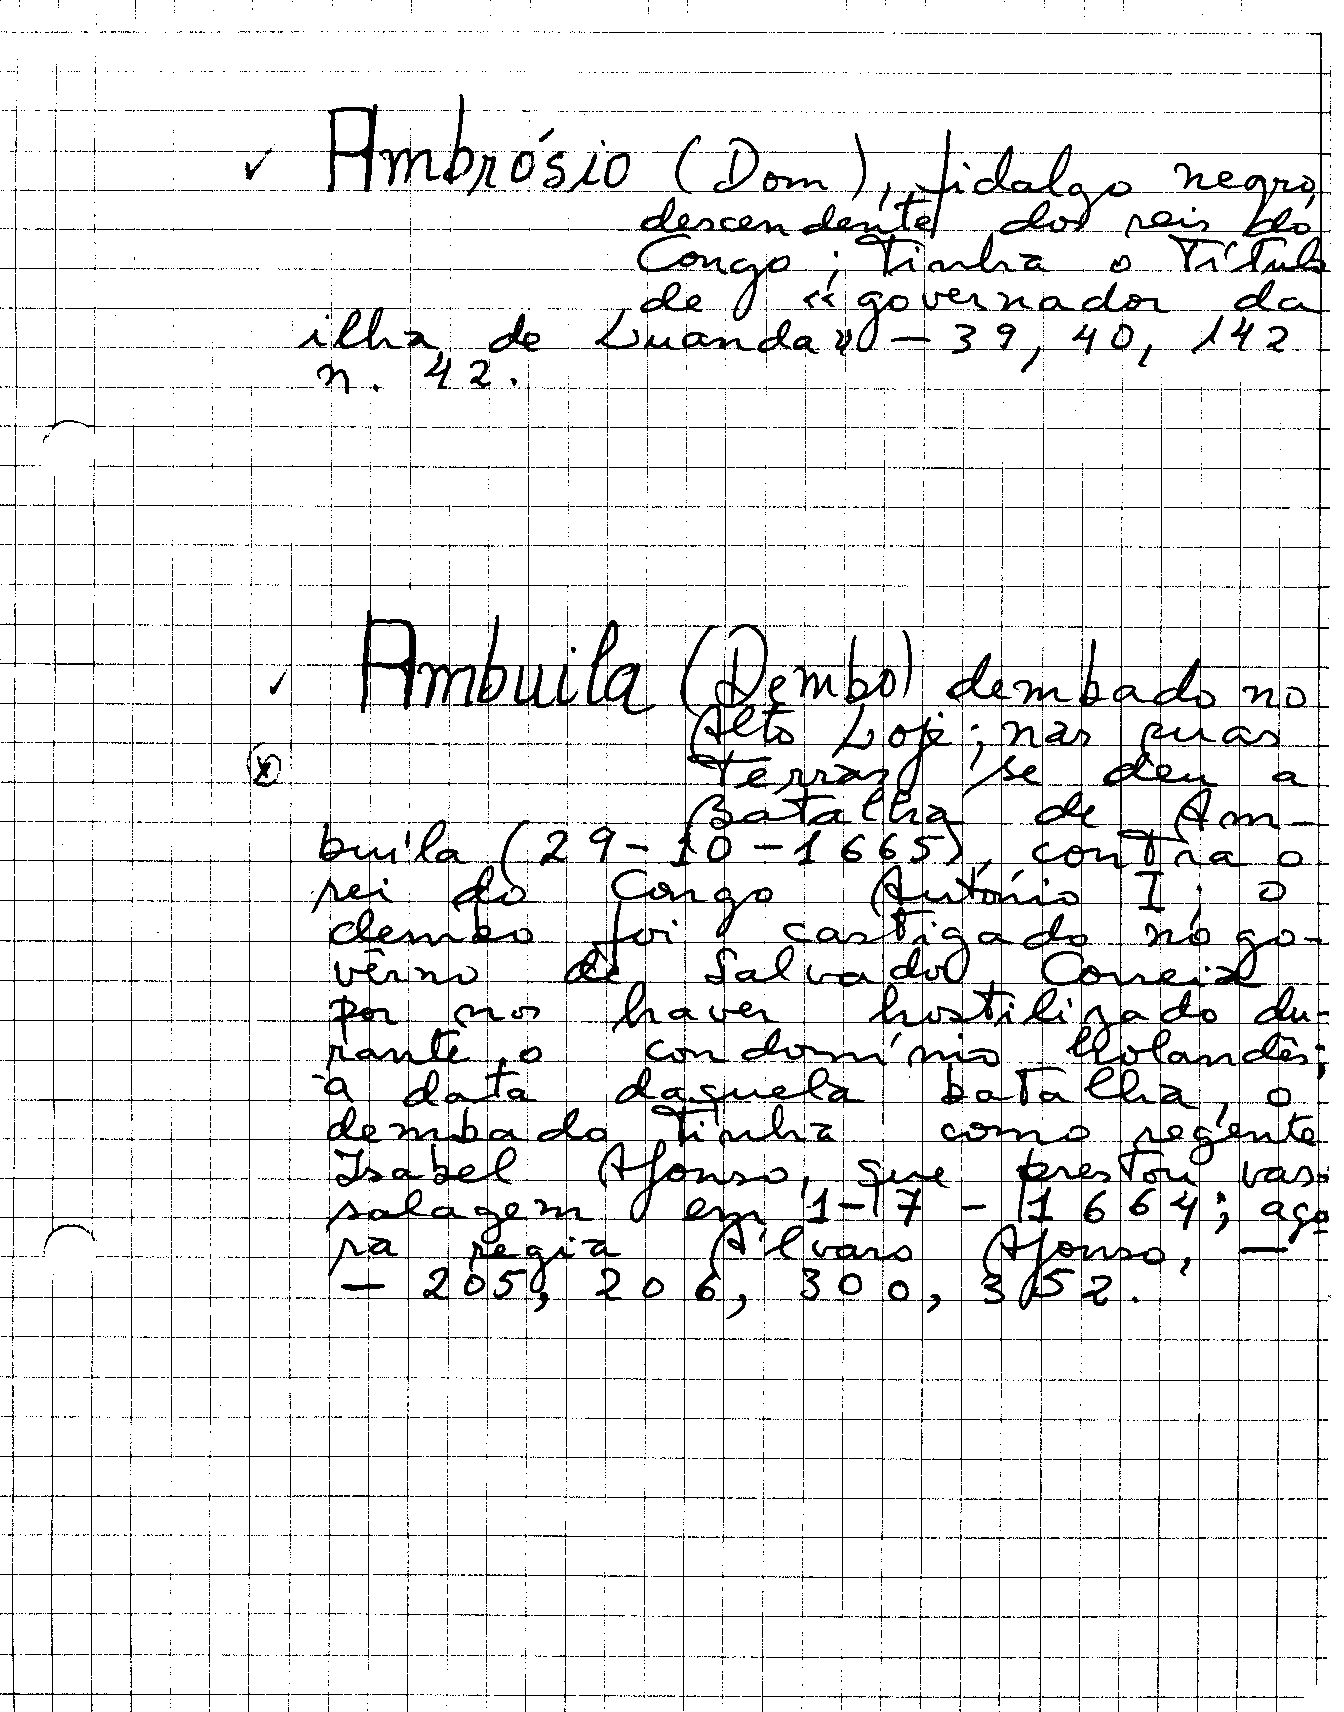 ✓ Ambrósio (Dom), fidalgo negro,
descendente dos reis do
Congo; tinha o título
de «governador da
ilha de Luanda» — 39, 40, 142
n. 42.
✓ Ambuila (Dembo) dembado no
Alto Loje; nas suas
terras se deu a
Batalha de Am-
buíla (29-10-1665), contra o
rei do Congo António I; o
dembo foi castigado no go-
vêrno de Salvador Correia
por nos haver hostilizado du-
rante o condomínio holandês;
à data daquela batalha, o
dembado tinha como regente
Isabel Afonso, que prestou vas-
salagem em 1-7-1664; ago
ra regia Álvaro Afonso, —
— 205, 206, 300, 352.